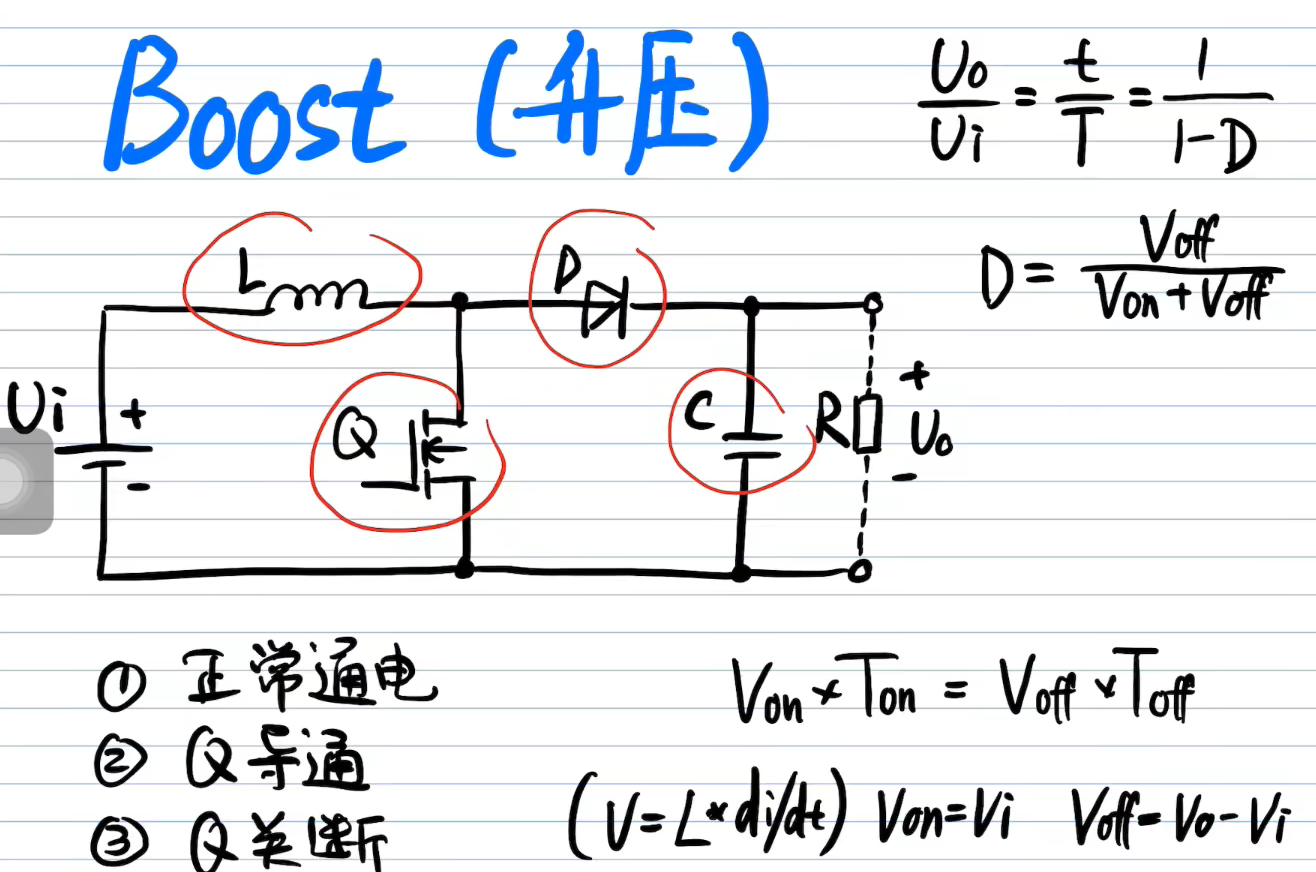 Boost (升压)
Uo/Ui = t/T = 1/(1-D)
D = Voff/(Von + Voff)
L
D
Ui
+
-
Q
C
R
+
Uo
-
① 正常通电
② Q导通
③ Q关断
Von × Ton = Voff × Toff
(V = L * di/dt) Von = Vi Voff = Vo - Vi